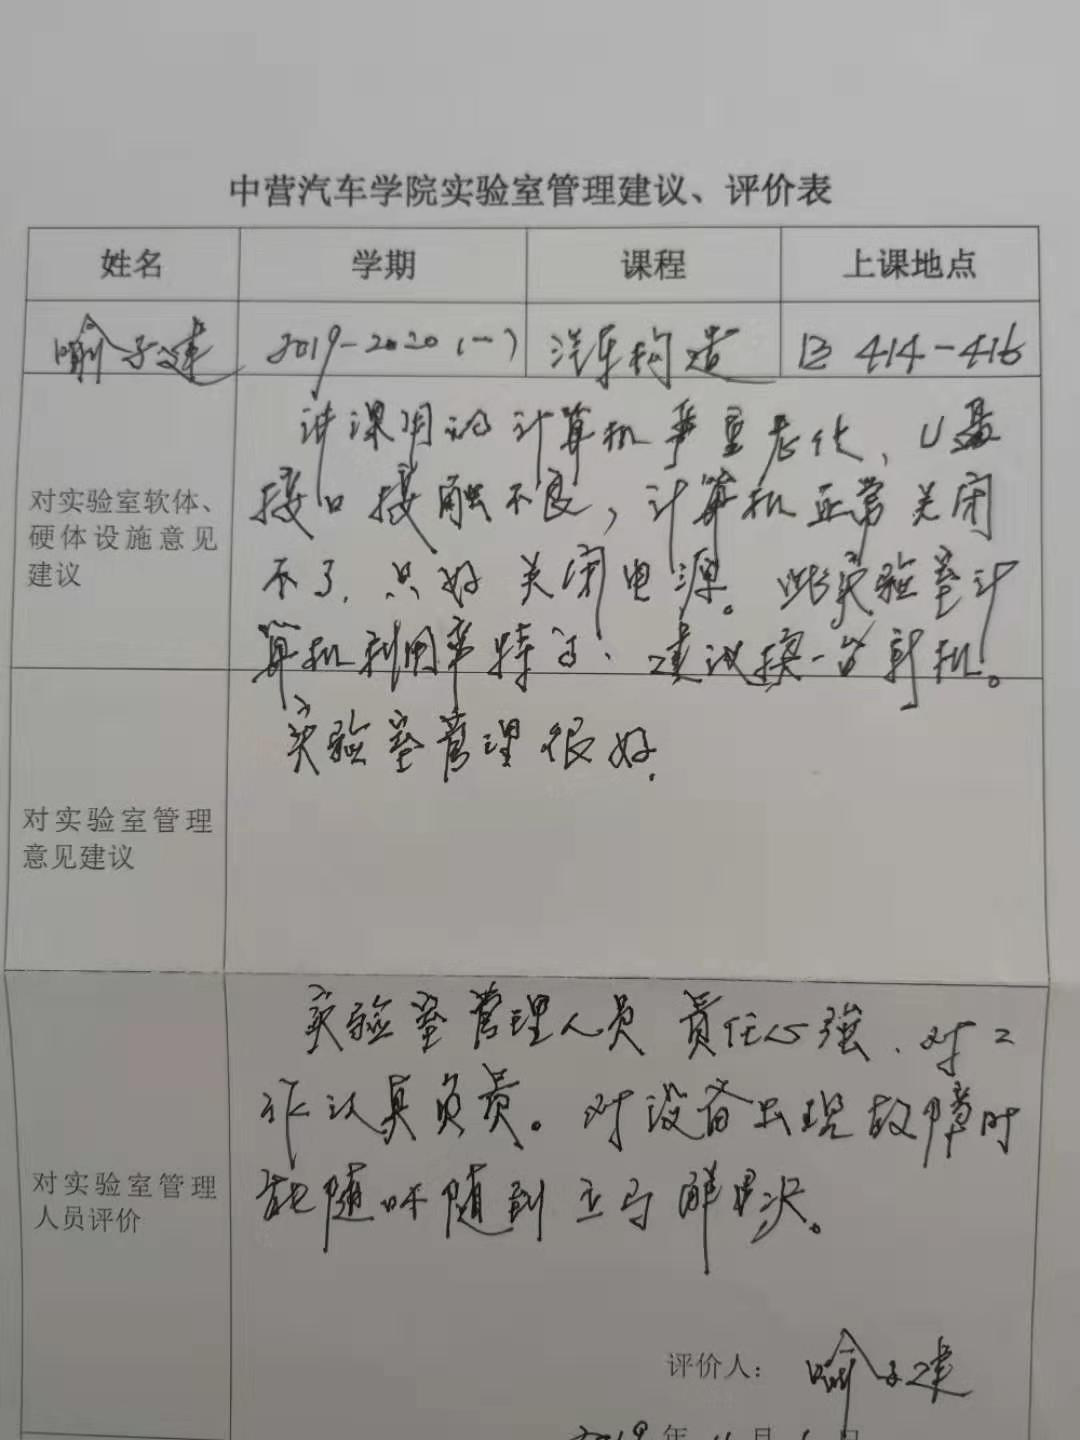 中营汽车学院实验室管理建议、评价表
姓名 学期 课程 上课地点
喻子建 2019-2020(一) 汽车构造 B 414-416
对实验室软体、
硬体设施意见
建议
讲课用的计算机严重老化，U盘
接口接触不良，计算机正常关闭
不了，只好关闭电源。此实验室计
算机利用率特高，建议换一台新机。
对实验室管理
意见建议
实验室管理很好.
对实验室管理
人员评价
实验室管理人员责任心强、对工
作认真负责。对设备出现故障时
能随叫随到立马解决。
评价人： 喻子建
2019年11月 日